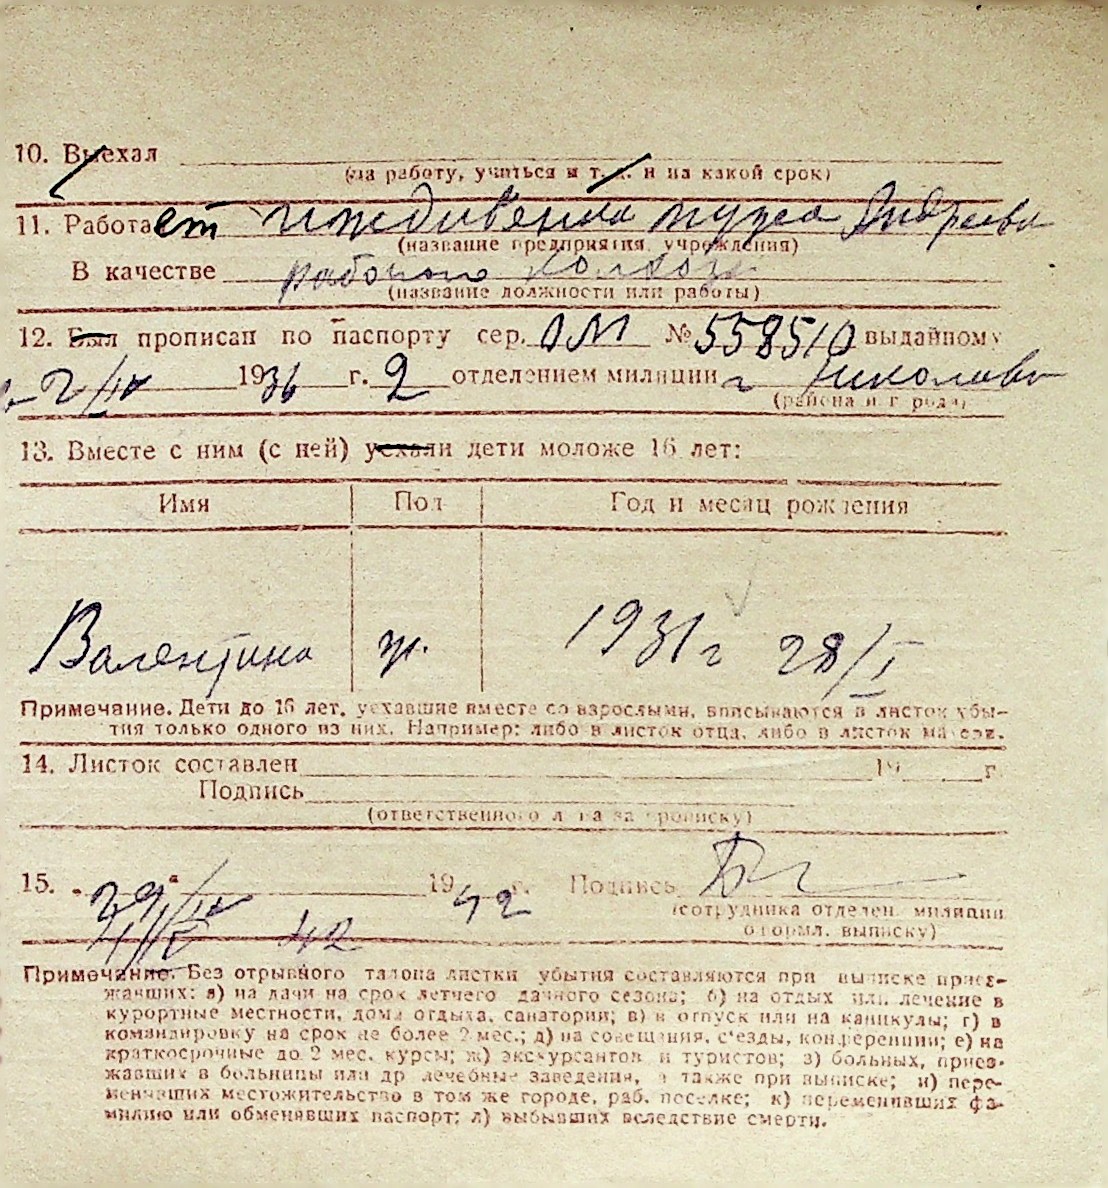 10. Выехал
(на работу, учиться и т. д. и на какой срок)
11. Работает иждивенка мужа Андреева
(название предприятия, учреждения)
В качестве рабочего колхоза
(название должности или работы)
12. Был прописан по паспорту сер. ОМ № 558510 выданному
2/IV 1936 г. 2 отделением милиции г Николаев
(района и города)
13. Вместе с ним (с ней) уехали дети моложе 16 лет:
Имя Пол Год и месяц рождения
Валентина ж. 1931 г 28/I
Примечание. Дети до 16 лет, уехавшие вместе со взрослыми, вписываются в листок убы-
тия только одного из них. Например: либо в листок отца, либо в листок матери.
14. Листок составлен 19 г.
Подпись
(ответственного лица за прописку)
15. „29“/IV 1942 г. Подпись
(сотрудника отделен. милиции
оформл. выписку)
42
Примечание. Без отрывного талона листки убытия составляются при выписке приез-
жавших: а) на дачи на срок летнего дачного сезона; б) на отдых или лечение в
курортные местности, дома отдыха, санатории; в) в отпуск или на каникулы; г) в
командировку на срок не более 2 мес.; д) на совещания, съезды, конференции; е) на
краткосрочные до 2 мес. курсы; ж) экскурсантов и туристов; з) больных, приез-
жавших в больницы или др лечебные заведения, а также при выписке; и) пере-
менивших местожительство в том же городе, раб. поселке; к) переменивших фа-
милию или обменявших паспорт; л) выбывших вследствие смерти.